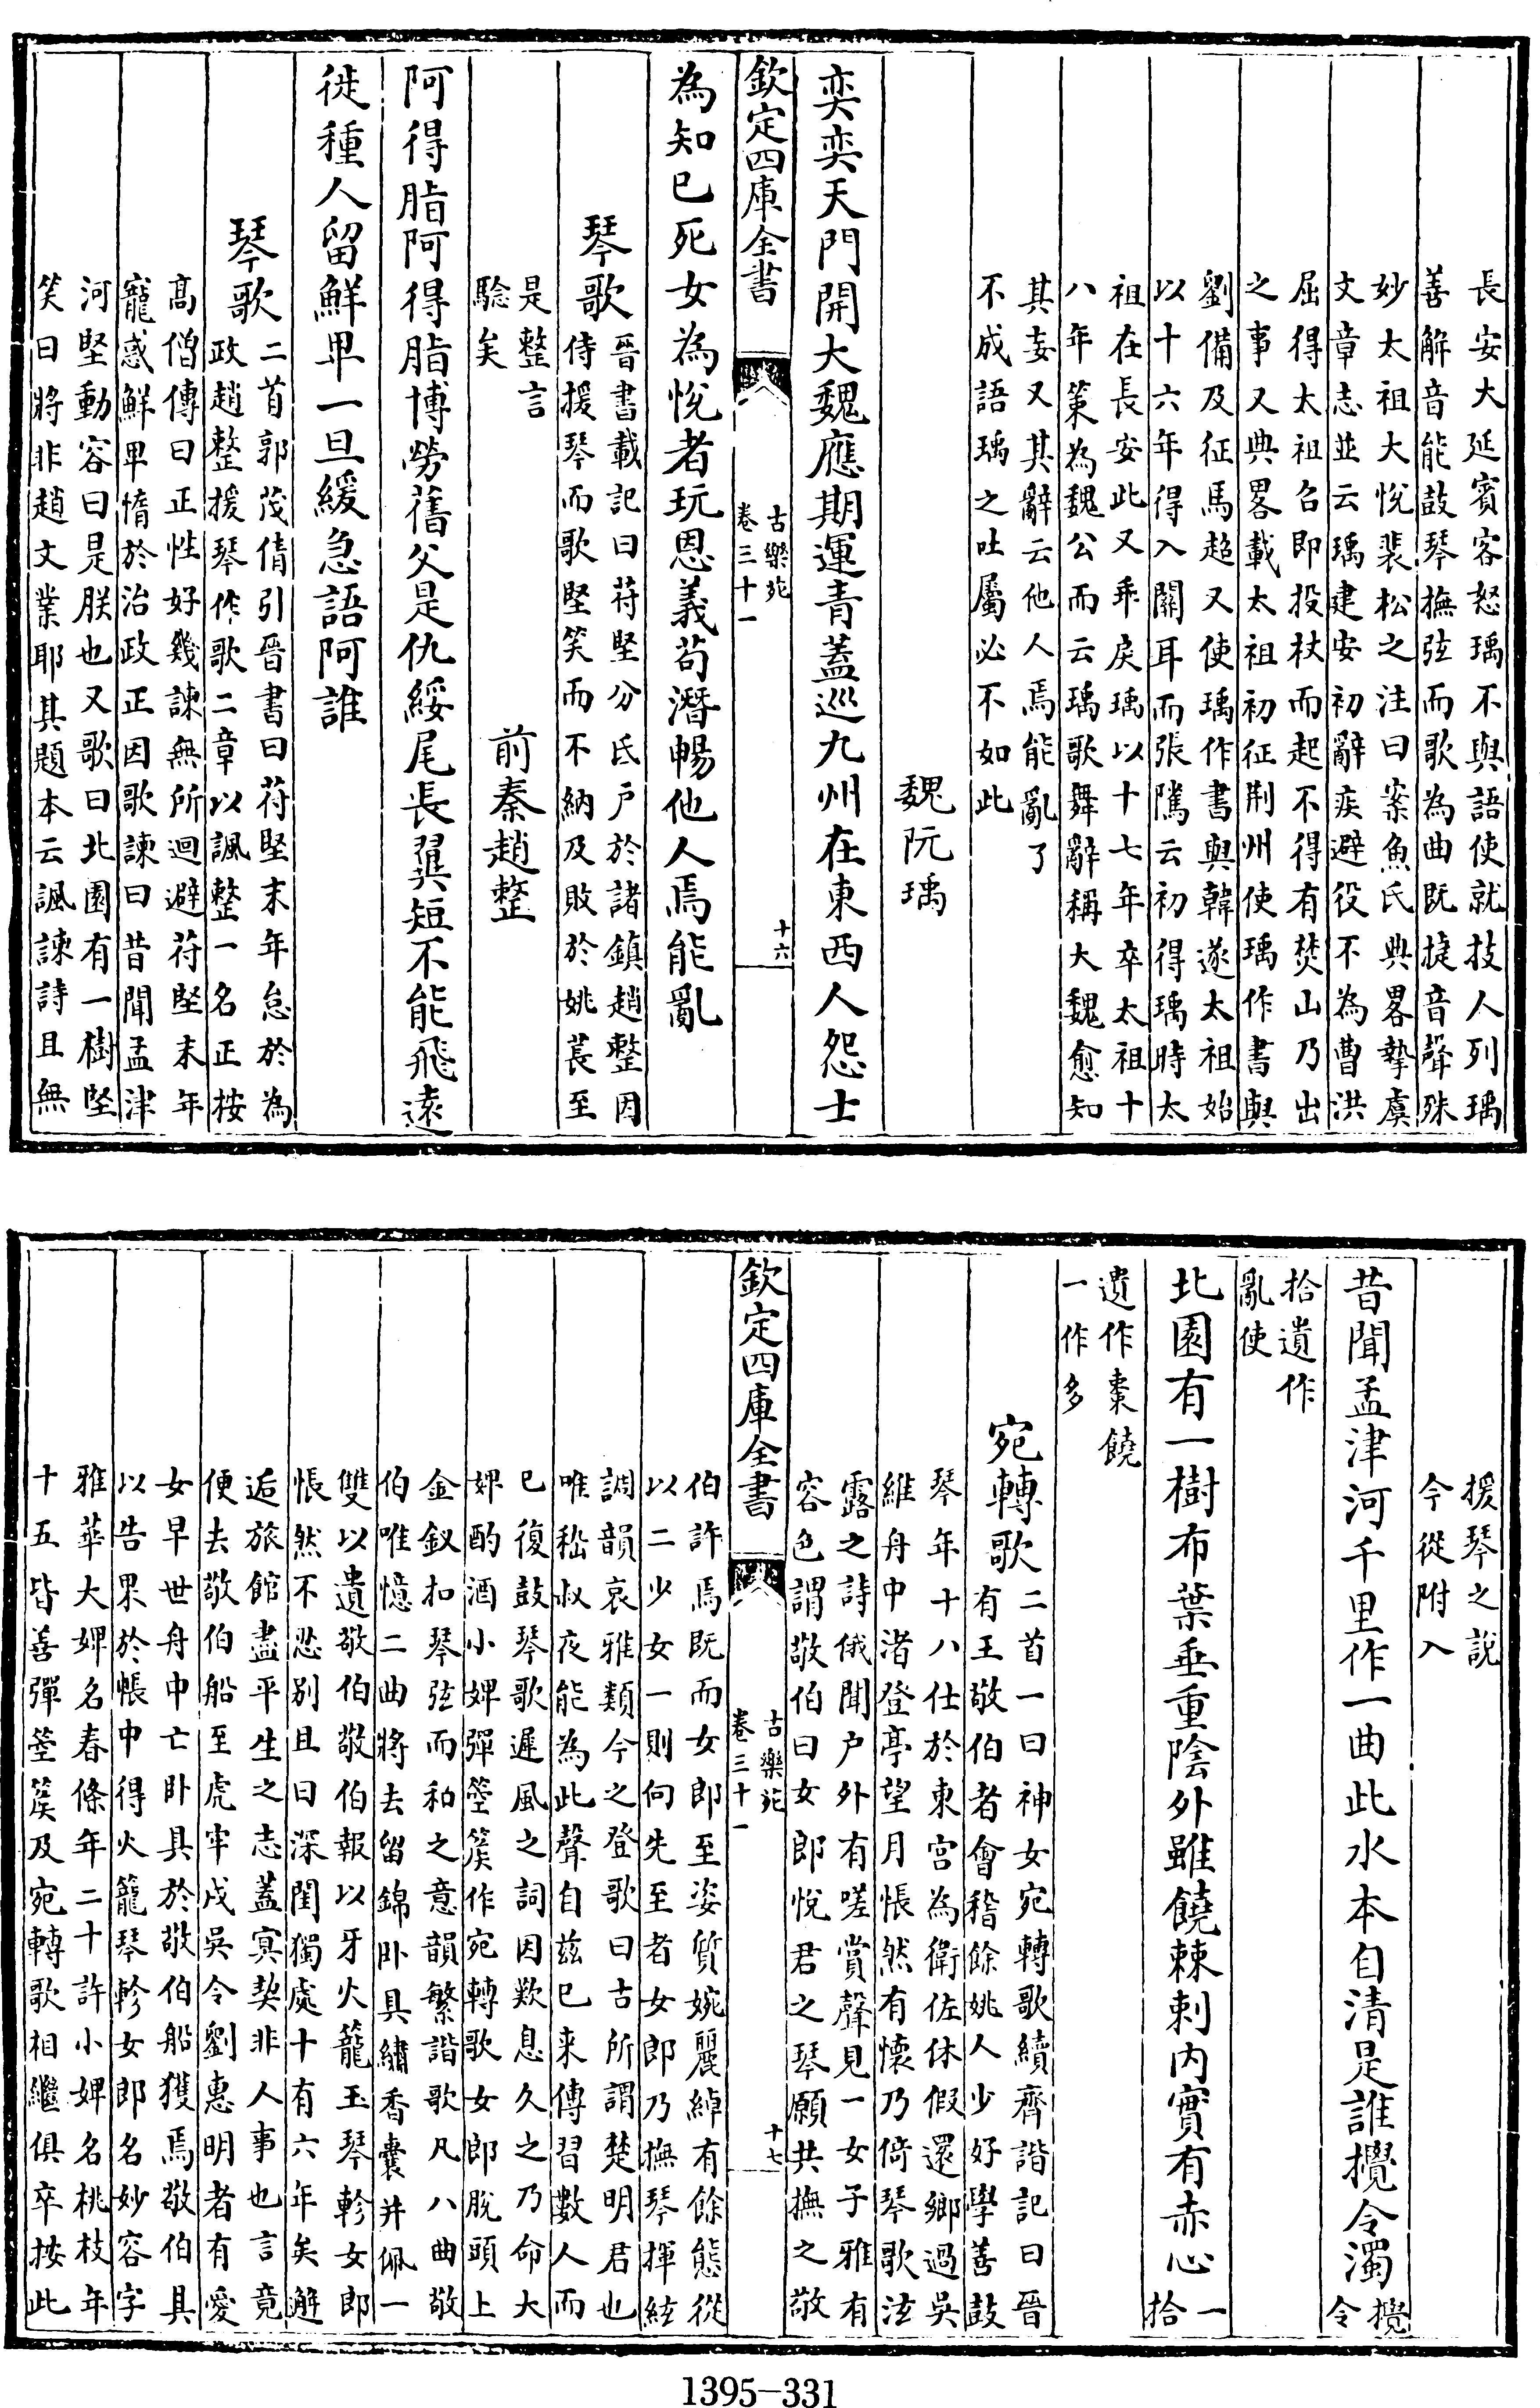 長安大延賓客怒瑀不與語使就技人列瑀
善解音能鼓琴撫弦而歌為曲既捷音聲殊
妙太祖大悅裴松之注曰案魚氏典畧摯虞
文章志並云瑀建安初辭疾避役不為曹洪
屈得太祖召即投杖而起不得有焚山乃出
之事又典畧載太祖初征荆州使瑀作書與
劉備及征馬超又使瑀作書與韓遂太祖始
以十六年得入關耳而張隲云初得瑀時太
祖在長安此又乖戾瑀以十七年卒太祖十
八年策為魏公而云瑀歌舞辭稱大魏愈知
其妄又其辭云他人焉能亂了
不成語瑀之吐屬必不如此
魏阮瑀
奕奕天門開大魏應期運青蓋巡九州在東西人怨士
欽定四庫全書
古樂苑
卷三十一
十六
為知已死女為悅者玩恩義苟潛暢他人焉能亂
琴歌
晉書載記曰苻堅分氐戶於諸鎮趙整因
侍援琴而歌堅笑而不納及敗於姚萇至
是整言
驗矣
前秦趙整
阿得脂阿得脂博勞舊父是仇綏尾長翼短不能飛遠
徙種人留鮮卑一旦緩急語阿誰
琴歌
二首郭茂倩引晉書曰苻堅末年怠於為
政趙整援琴作歌二章以諷整一名正按
髙僧傳曰正性好幾諫無所迴避苻堅末年
寵惑鮮卑惰於治政正因歌諫曰昔聞孟津
河堅動容曰是朕也又歌曰北園有一樹堅
笑曰將非趙文業耶其題本云諷諫詩且無
援琴之說
今從附入
昔聞孟津河千里作一曲此水本自清是誰攪令濁
攪令
拾遺作
亂使
北園有一樹布葉垂重陰外雖饒棘刺内實有赤心
一拾
遺作棗饒
一作多
宛轉歌
二首一曰神女宛轉歌續齊諧記曰晉
有王敬伯者會稽餘姚人少好學善鼓
琴年十八仕於東宮為衛佐休假還鄉過吳
維舟中渚登亭望月悵然有懷乃倚琴歌泫
露之詩俄聞户外有嗟賞聲見一女子雅有
容色謂敬伯曰女郎悅君之琴願共撫之敬
欽定四庫全書
古樂苑
卷三十一
十七
伯許焉既而女郎至姿質婉麗綽有餘態從
以二少女一則向先至者女郎乃撫琴揮絃
調韻哀雅類今之登歌曰古所謂楚明君也
唯嵇叔夜能為此聲自兹已来傳習數人而
已復鼓琴歌遲風之詞因歎息久之乃命大
婢酌酒小婢彈箜篌作宛轉歌女郎脫頭上
金釵扣琴弦而和之意韻繁諧歌凡八曲敬
伯唯憶二曲將去留錦卧具繡香囊并佩一
雙以遺敬伯敬伯報以牙火籠玉琴軫女郎
悵然不忍别且曰深閨獨處十有六年矣邂
逅旅館盡平生之志蓋㝠契非人事也言竟
便去敬伯船至虎牢戍吳令劉惠明者有愛
女早世舟中亡卧具於敬伯船獲焉敬伯具
以告果於帳中得火籠琴軫女郎名妙容字
雅華大婢名春條年二十許小婢名桃枝年
十五皆善彈箜篌及宛轉歌相繼俱卒按此
1395-331